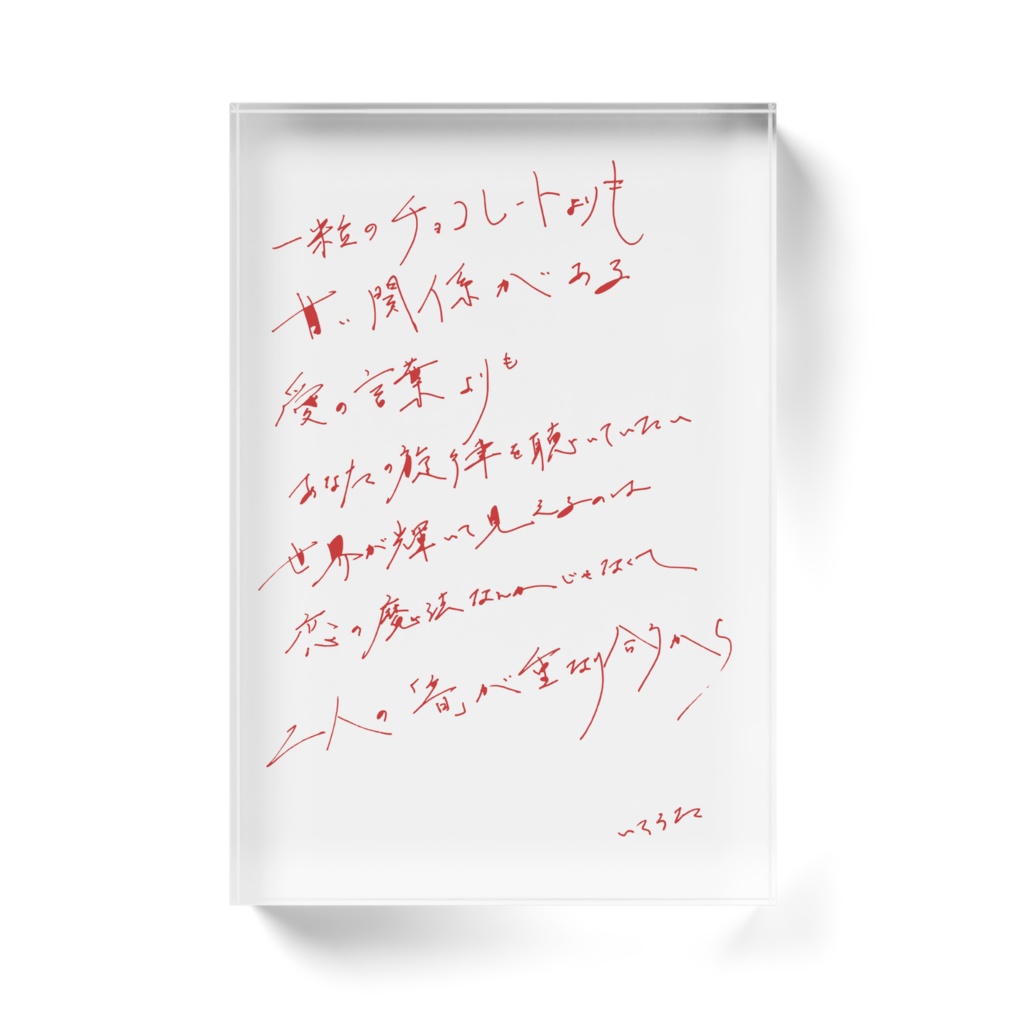 一粒のチョコレートよりも
甘い関係がある
愛の言葉よりも
あなたの旋律を聴いていたい
世界が輝いて見えるのは
恋の魔法なんかじゃなくて
二人の「音」が重なり合うから
いろうた